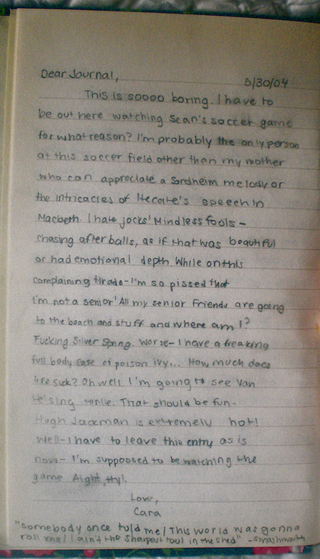 Dear Journal, 5/30/04
This is soooo boring. I have to
be out here watching Sean's soccer game
for what reason? I'm probably the only person
at this soccer field other than my mother
who can appreciate a Sondheim melody or
the intricacies of Hecate's speech in
Macbeth. I hate jocks! Mindless fools-
chasing after balls, as if that was beautiful
or had emotional depth. While on this
complaining tirade- I'm so pissed that
I'm not a senior! All my senior friends are going
to the beach and stuff and where am I?
Fucking Silver Spring. Worse- I have a freaking
full body case of poison ivy... How much does
life suck? Oh well. I'm going to see Van
Helsing That should be fun-
Hugh Jackman is extremely hot!
Well- I have to leave this entry as is
now- I'm supposed to be watching the
game. Aight,
Love,
Cara
"Somebody once told me/ This world was gonna
roll me/ I aint the sharpest tool in the shed" -Smashmouth